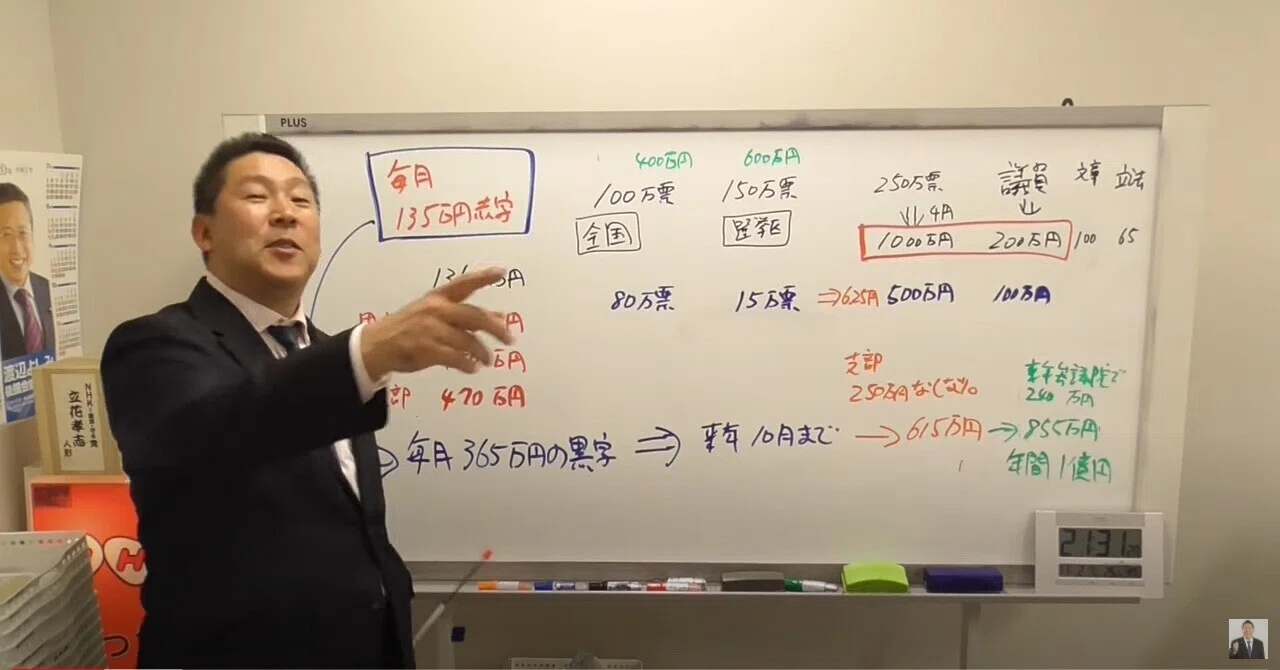 PLUS
毎月
135万円赤字
400万円
600万円
100万票
150万票
250万票
議員
文章
立法
4円
全国
選挙区
1000万円
200万円
100
65
80万票
15万票
⇒625円
500万円
100万円
万円
円
万円
部 470万円
支部
250万円なくなる
来年参議院で
240万円
⇒ 毎月 365万円の黒字 ⇒ 来年 10月まで → 615万円 → 855万円
年間 1億円
渡辺よしみ
NHK
立花孝志
人形
21:31